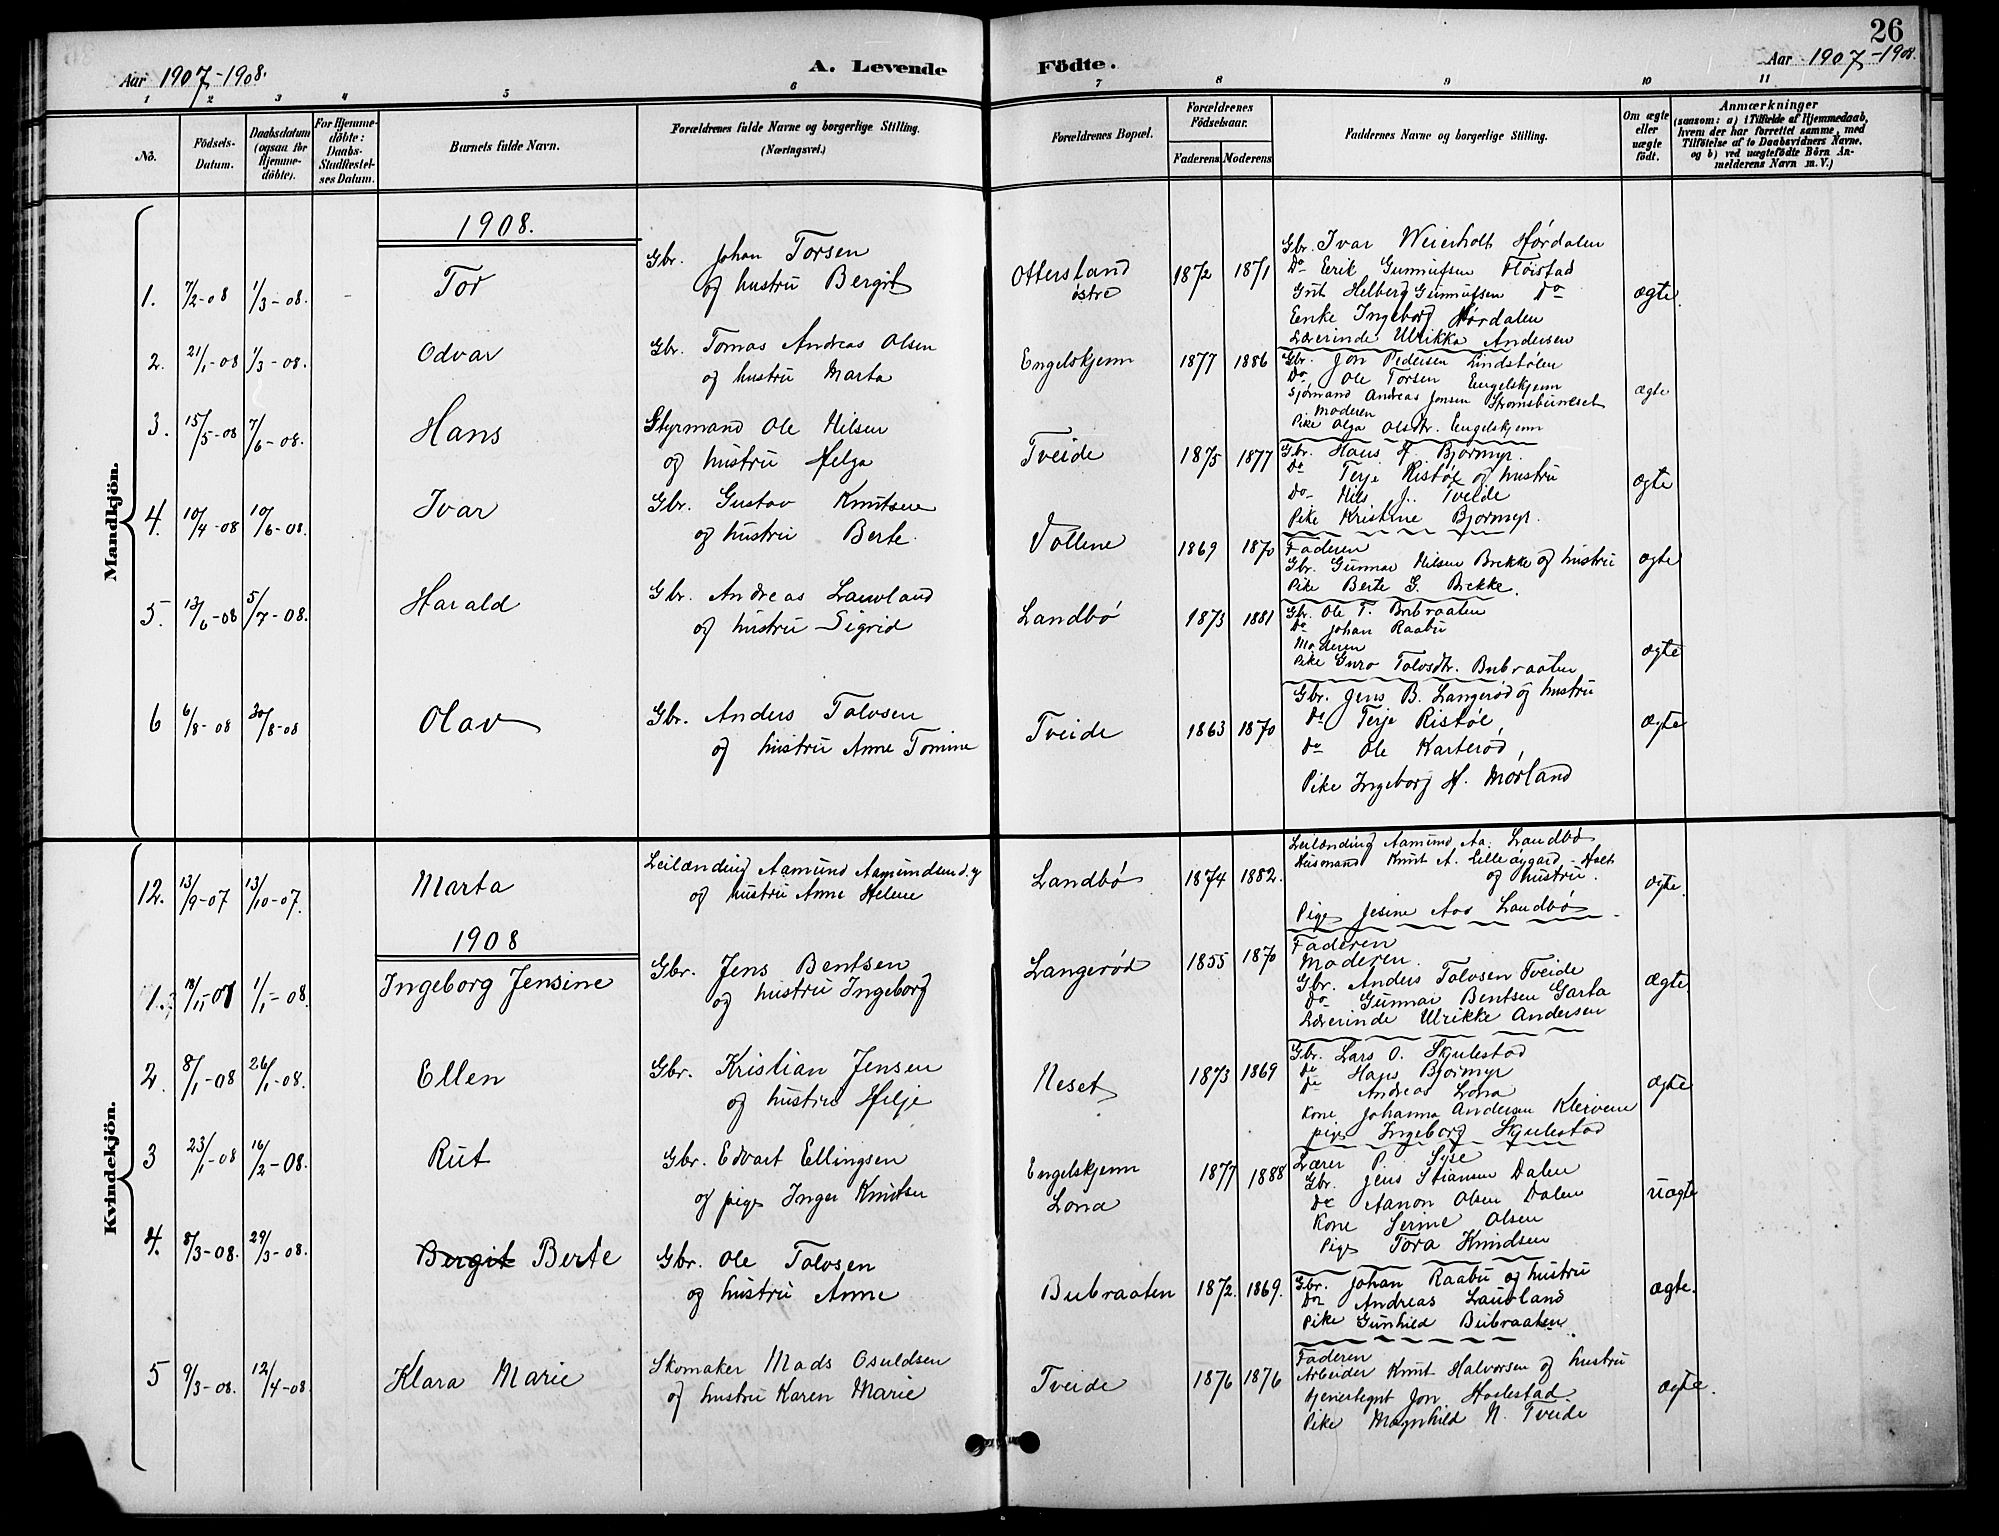 26
Aar 1907-1908.
A. Levende Födte.
Aar 1907-1908.
1 2 3 4 5 6 7 8 9 10 11
No.
Födsels-Datum.
Daabsdatum (ogsaa for Hjemme-döbte).
For Hjemme-döbte: Daabs-Stadfæstel-ses Datum.
Barnets fulde Navn.
Forældrenes fulde Navne og borgerlige Stilling. (Næringsvei.)
Forældrenes Bopæl.
Forældrenes Födselsaar.
Faderens Moderens
Faddernes Navne og borgerlige Stilling.
Om ægte eller uægte födt.
Anmærkninger
(saasom: a) i Tilfælde af Hjemmedaab,
hvem der har forrettet samme, med
Tilföielse af to Daabsvidners Navne,
og b) ved uægtefödte Börn An-
melderens Navn m. V.)
Mandkjön.
1908.
1. 7/2-08 1/3-08. - Tor
Gbr. Johan Torsen
og hustru Bergit
Ottersland
östre
1872 1871
Gbr. Ivar Weierholt Hørdalen
Do Eerik Gunnufsen Fløistad
Gut Helberg Gunnufsen Do
Enke Ingeborg Hørdalen
Lærerinde Ulrikka Andersen
ægte.
2. 21/1-08 1/3-08. Odvar
Gbr. Tomas Andreas Olsen
og hustru Marta
Engelskjenn
1877 1886
Gbr. Jon Pedersen Lindstølen
Do Ole Torsen Engelskjenn
Sjømand Andreas Jensen Strømsbuneset
Moderen
Pike Olga Olsdtr. Engelskjenn
ægte
3. 15/5-08 7/6-08. Hans
Styrmand Ole Nilsen
og hustru Helga
Tveide
1875 1877
Gbr. Hans H. Bjormyr.
Do Terje Ristøl og hustru
Do Nils J. Tveide
Pike Kristine Bjormyr.
ægte
4. 10/4-08 10/6-08. Ivar
Gbr. Gustav Knutsen
og hustru Berte.
Vollene
1869 1870
Faderen
Gbr. Gunnar Nilsen Brekke og hustru
Pike Berte G. Brekke.
ægte
5. 13/6-08 5/7-08. Harald
Gbr. Andreas Lauvland
og hustru Sigrid
Landbø
1873 1881
Gbr. Ole T. Bubraaten
Do Johan Raabu
Moderen
Pike Guro Talvsdtr. Bubraaten
ægte
6 6/8-08 30/8-08 Olav
Gbr. Anders Talvsen
og hustru Anne Tomine
Tveide
1863 1870
Gbr. Jens B. Langerød og hustru
Do Terje Ristøl,
Do Ole Karterød,
Pike Ingeborg H. Mørland
ægte
Kvindekjön.
12. 13/9-07 13/10-07. Marta
Leilænding Aamund Aamundsen
og hustru Anne Helene
Landbø
1874 1882.
Leilænding Aamund Aa. Landbø
Husmand Knut A. Holt
og hustru.
Pige Jesine Aas Landbø
ægte.
1908
1. 1/1-08. Ingeborg Jensine
Gbr. Jens Bentsen
og hustru Ingeborg
Langerød
1855 1870
Faderen
Moderen.
Gbr. Anders Talvsen Tveide
Do Gunnar Bentsen Garta
Lærerinde Ulrikke Andersen
ægte.
2. 8/1-08 26/1-08. Ellen
Gbr. Kristian Jensen
og hustru Helje
Neset
1873 1869
Gbr. Lars O. Skjulestad
Do Hans Bjormyr
Do Andreas Lona
Kone Johanna Andersen Kleivene
pige Ingeborg Skjulestad
ægte
3 23/1-08 16/2-08. Rut
Gbr. Edvart Ellingsen
og pige Inger Knutsen
Engelskjenn
Lona
1877 1888
Lærer P. Syse
Gbr. Jens Stiansen Dalen
Do Aanon Olsen Dalen
Kone Serine Olsen
Pige Tora Knudsen
uægte
4. 8/3-08. 29/3-08. Bergit Berte
Gbr. Ole Talvsen
og hustru Anne
Bubraaten
1872. 1869.
Gbr. Johan Raabu og hustru
Do Andreas Lauvland
Pike Gunhild Bubraaten
ægte.
5 9/3-08. 12/4-08. Klara Marie
Skomaker Mads Osuldsen
og hustru Karen Marie
Tveide
1876 1876
Faderen
Arbeider Knut Halvorsen og hustru
Jon Hoelestad
Pike Magnhild N. Tveide
ægte.